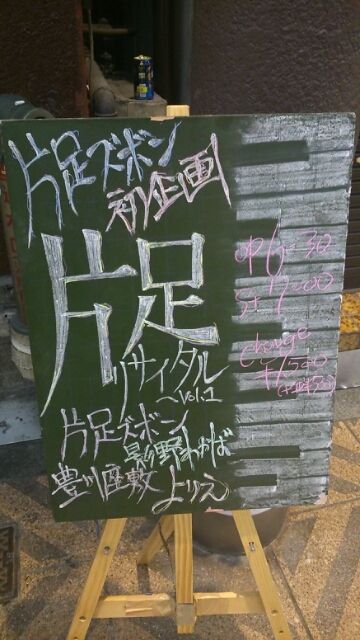 片足ズボン
初企画
片足
リサイタル
~Vol.1
片足ズボーン
影野わかば
豊川座敷よりえ
op 6:30
st 7:00
charge